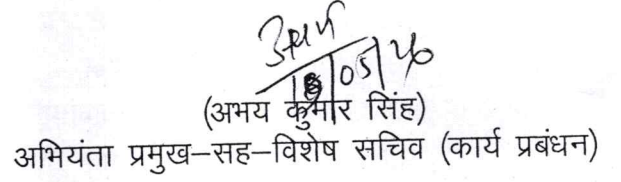 अभय
(अभय कुमार सिंह)
अभियंता प्रमुख–सह–विशेष सचिव (कार्य प्रबंधन)